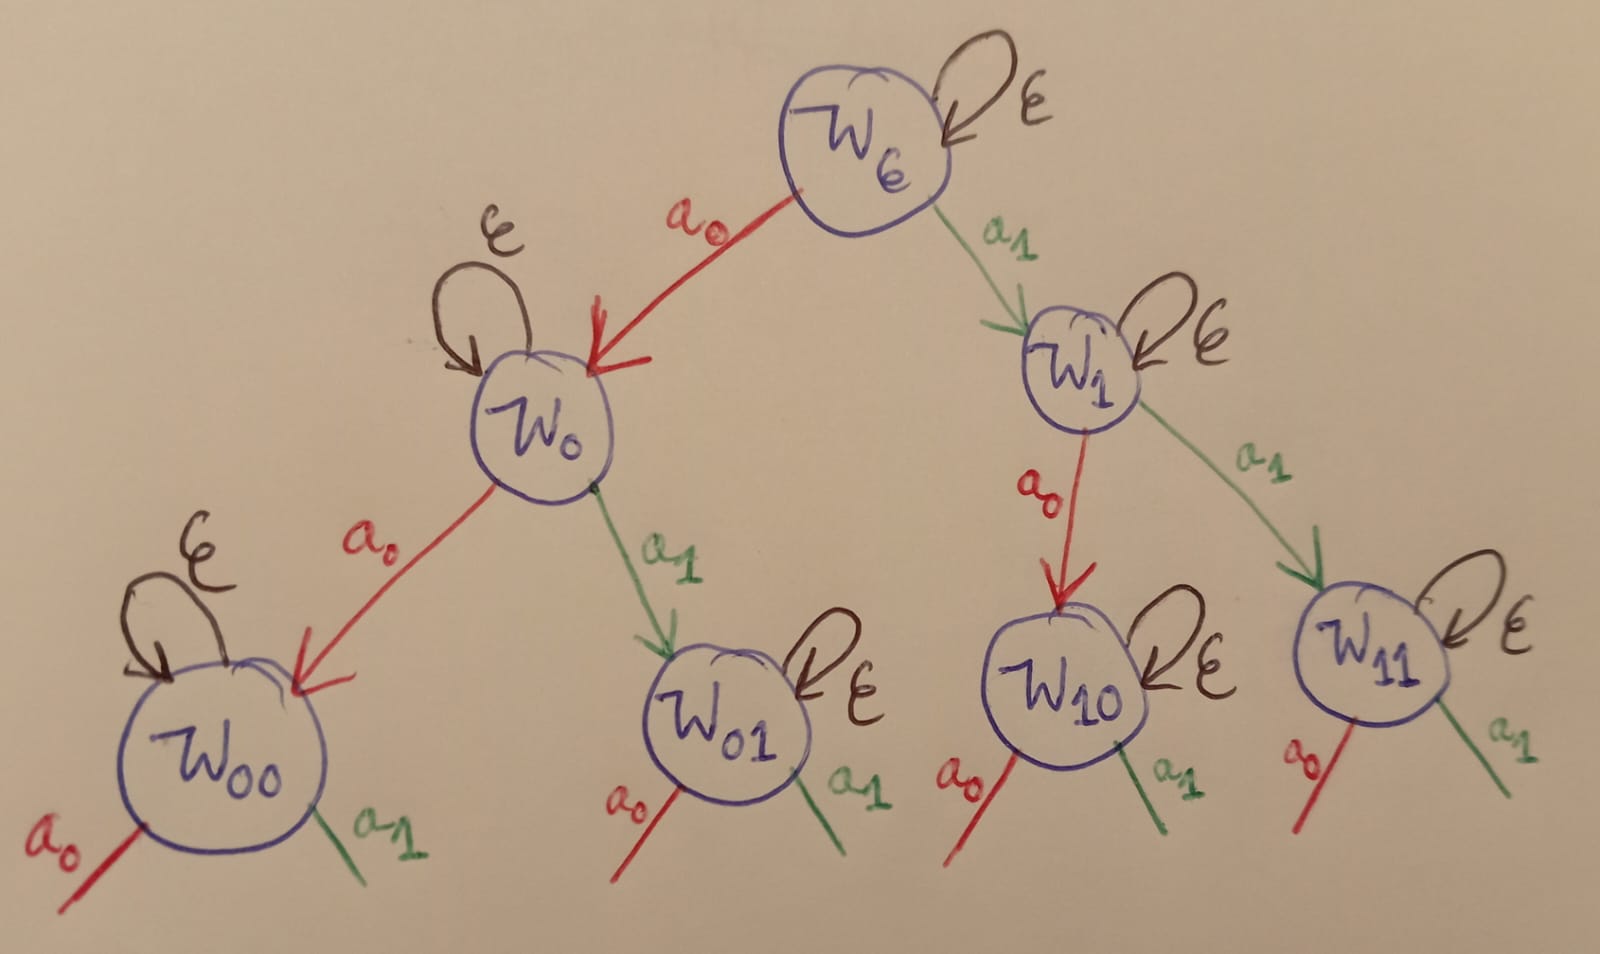 ϵ
W_ϵ
a_0
a_1
ϵ
ϵ
W_0
W_1
a_0
a_1
a_0
a_1
ϵ
ϵ
ϵ
ϵ
W_00
W_01
W_10
W_11
a_0
a_1
a_0
a_1
a_0
a_1
a_0
a_1